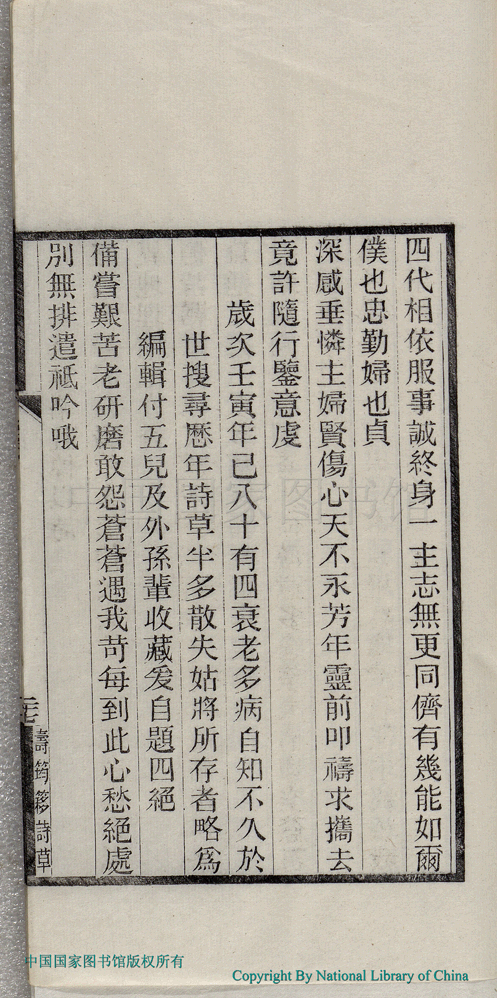 四代相依服事誠終身一主志無更同儕有幾能如爾
僕也忠勤婦也貞
深感垂憐主婦賢傷心天不永芳年靈前叩禱求攜去
竟許隨行鑒意虔
歲次壬寅年已八十有四衰老多病自知不久於
世搜尋歷年詩草半多散失姑將所存者略為
編輯付五兒及外孫輩收藏爰自題四絕
備嘗艱苦老研磨敢怨蒼蒼遇我苛每到此心愁絕處
別無排遣祗吟哦
壽筠簃詩草
中国国家图书馆版权所有
Copyright By National Library of China